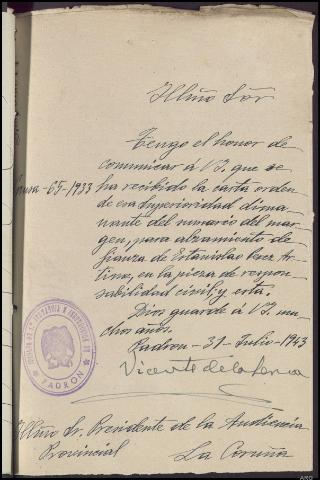 Illmo Sõr
Tengo el honor de
comunicar á V.I. que se
ha recibido la carta orden
-65-1933
de esa Superioridad dima-
nante del sumario del mar-
gen, para alzamiento de
fianza de Estanislao Perez
en la pieza de respon-
sabilidad civil; y esta.
Dios guarde á V.I. mu-
chos años.
Padron - 31 - Julio - 1943
Vicente de la
PADRON
Illmo Sr. Presidente de la Audiencia
Provincial La Coruña